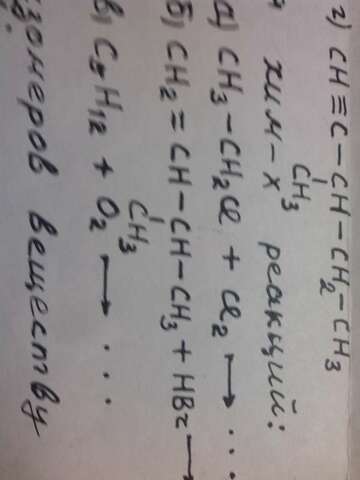 г) CH≡C–CH–CH₂–CH₃
CH₃
хим-х реакций:
а) CH₃–CH₂Cl + Cl₂ ⟶ ...
б) CH₂=CH–CH–CH₃ + HBr ⟶
CH₃
в) C₅H₁₂ + O₂ ⟶ ...
зомеров веществу